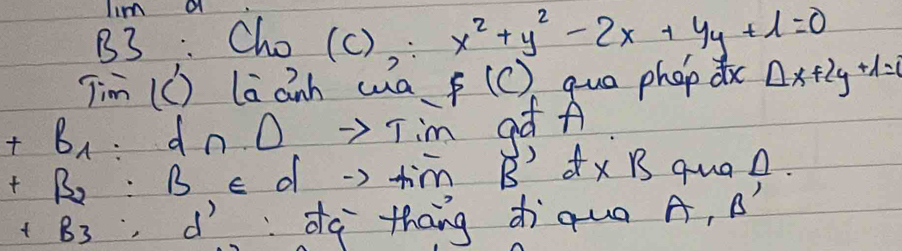 Tìm
B3 : Cho (C) : x² + y² - 2x + 4y + 1 = 0
Tìm (C') là ảnh của (C) qua phép đx Δ x + 2y + 1 = 0
+ B1 : d ∩ Δ → Tìm gđ A
+ B2 : B ∈ d → tìm B' đx B qua Δ.
+ B3 : d' : đg thẳng đi qua A, B'